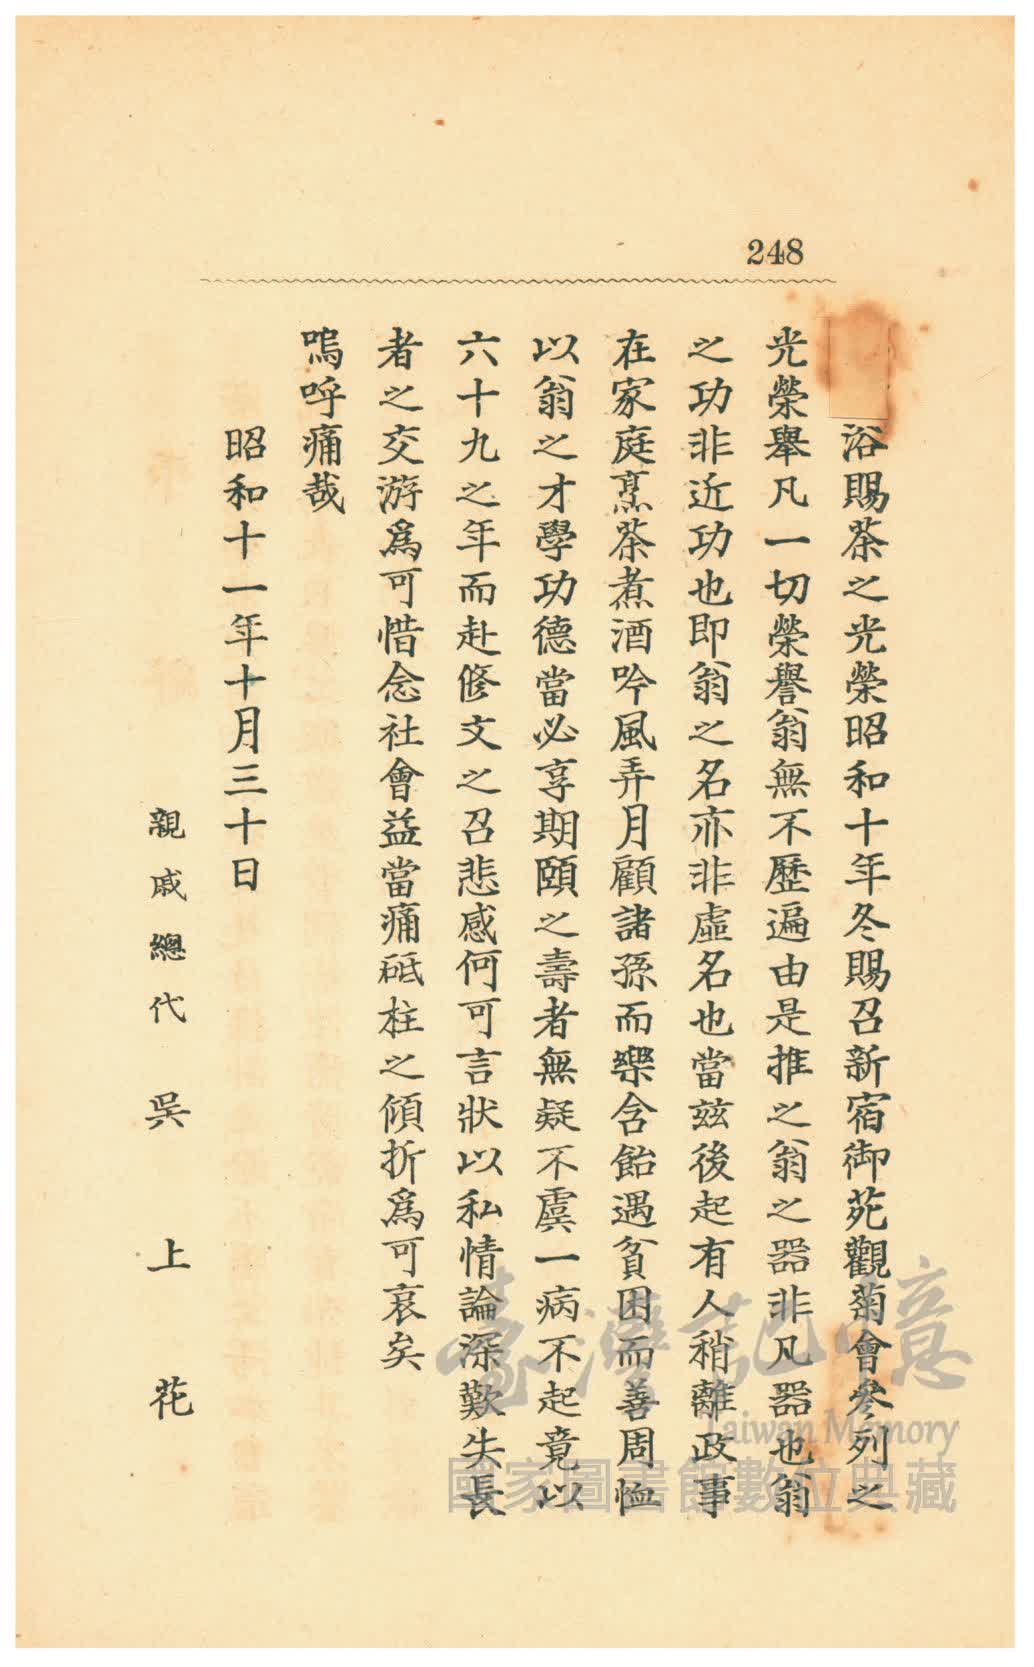 248
浴賜茶之光榮昭和十年冬賜召新宿御苑觀菊會參列之
光榮舉凡一切榮譽翁無不歷遍由是推之翁之器非凡器也翁
之功非近功也即翁之名亦非虛名也當茲後起有人稍離政事
在家庭烹茶煮酒吟風弄月顧諸孫而樂含飴遇貧困而善周恤
以翁之才學功德當必享期頤之壽者無疑不虞一病不起竟以
六十九之年而赴修文之召悲感何可言狀以私情論深歎失長
者之交游爲可惜念社會益當痛砥柱之傾折爲可哀矣
嗚呼痛哉
昭和十一年十月三十日
親戚總代 吳上花
臺灣記憶
Taiwan Memory
國家圖書館數位典藏